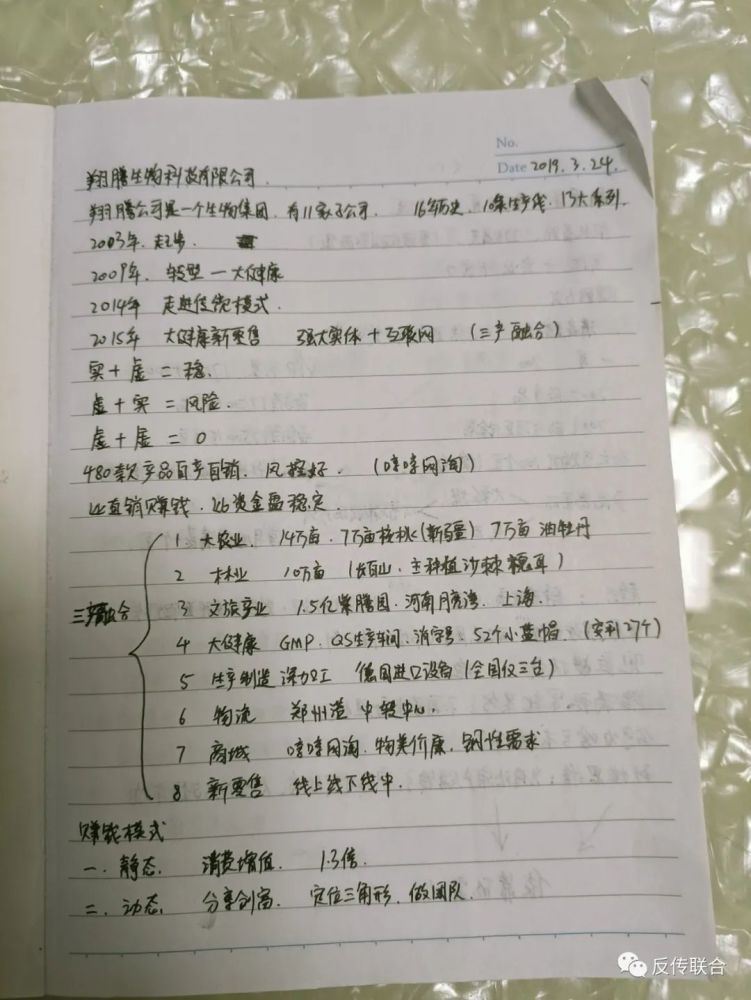 No.
Date 2019.3.24.
翔腾生物科技有限公司.
翔腾公司是一个生物集团.有11家子公司. 16年历史.10条生产线.13大系列.
2003年.起步.
2009年. 转型一大健康
2014年 走进传统模式.
2015年 大健康新零售 强大实体+互联网 (三产融合)
实+虚=稳.
虚+实=风险.
虚+虚=0
480款产品自产自销.风控好. (嘻嘻网淘)
比直销赚钱.比资金盘稳定
三产融合
1. 大农业. 14万亩.7万亩核桃(新疆) 7万亩 油牡丹
2 林业 10万亩 (长白山.主种植沙棘 耳)
3 文旅产业 1.5亿紫腾园.河南月亮湾.上海.
4 大健康 GMP.QS生产车间.消字号.52个小蓝帽.(实利27个)
5 生产制造 深加工 德国进口设备(全国仅三台)
6 物流 郑州港 中转中心.
7 商城 嘻嘻网淘.物美价廉.钢性需求
8 新零售 线上线下线中.
赚钱模式
一.静态. 消费增值. 1.3倍.
二.动态. 分享创富. 定位三角形.做团队.
反传联合